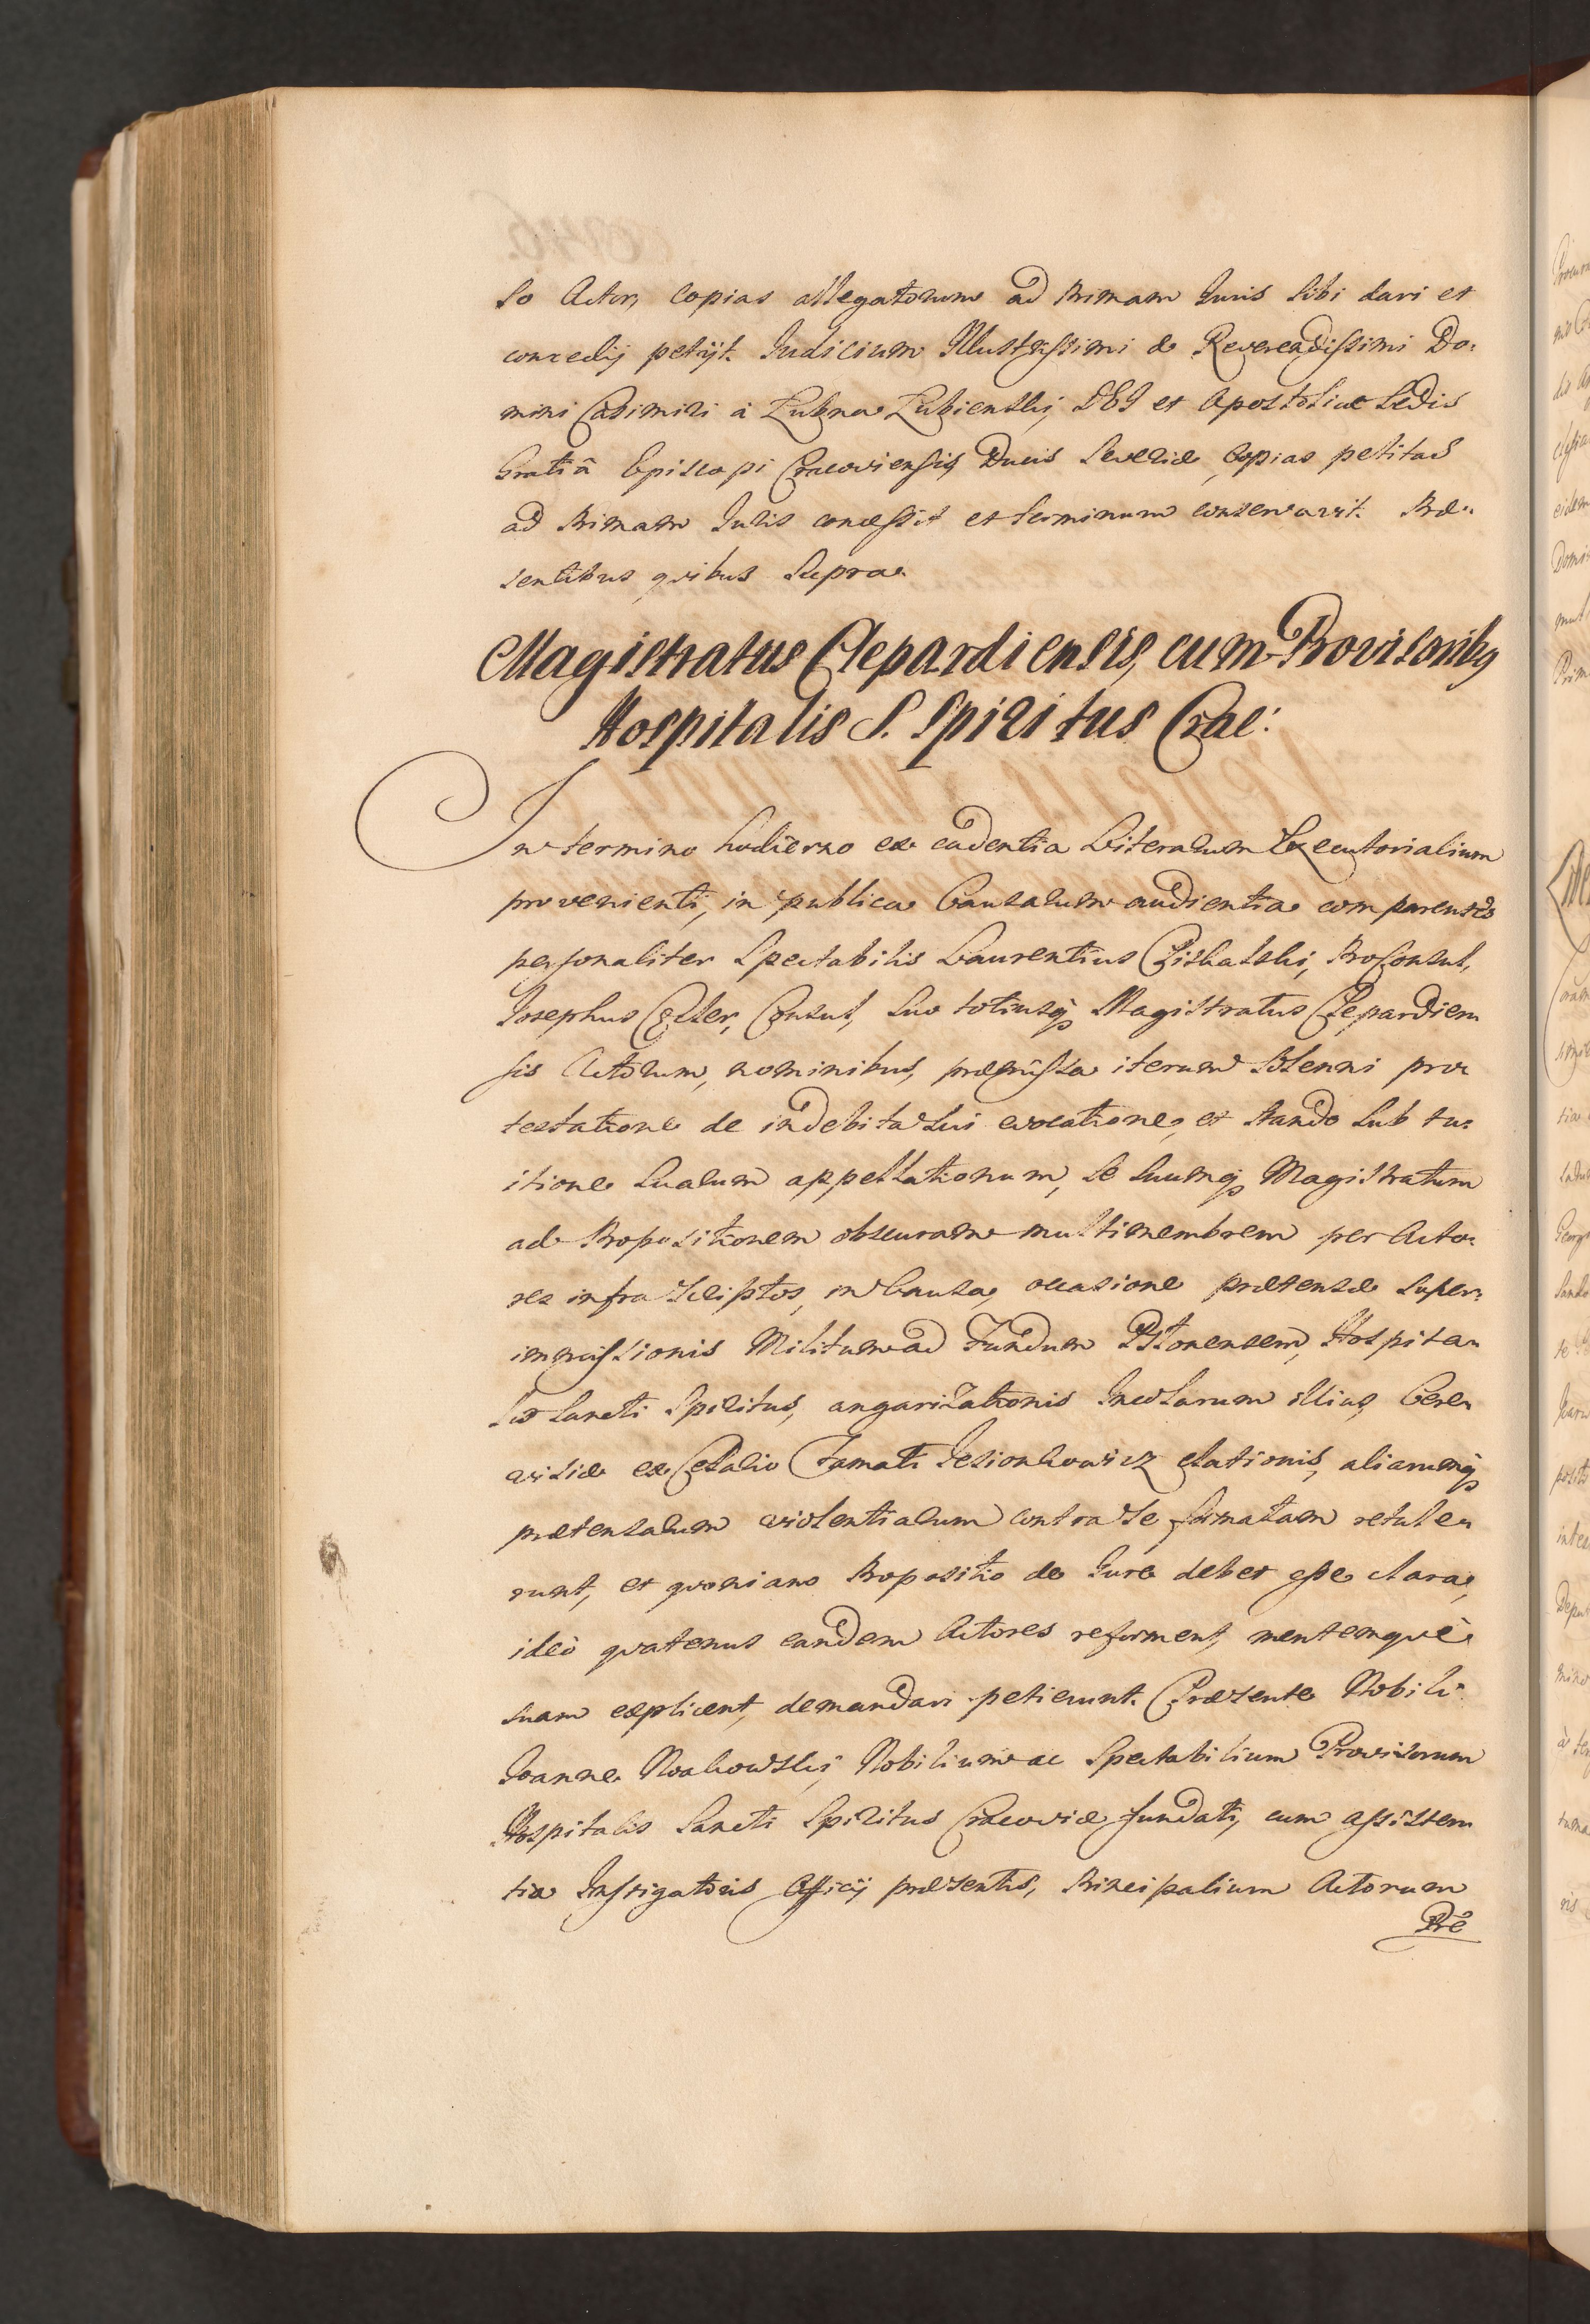 so Actor, copias allegatorum ad Primam Juris sibi dari et
concedij petijt. Judicium Illustrissimi & Reverendissimi Do:
mini Casimiri à Łubna Łubienskj, DEI et Apostolicæ Sedis
Gratiâ Episcopi Cracoviensis, Ducis Severiæ, copias petitas
ad Primam Juris concessit et terminum conservavit. Præ:
sentibus quibus supra.
Magistratus Clepardiensis, cum Provisoribq
Hospitalis S. Spiritus Crac:
In termino hodierno ex cadentia Literarum Executorialium
provenienti, in publica Causarum audientia comparentes
personaliter Spectabilis Laurentius ProConsul,
Josephus Consul, suo totiusq Magistratus Clepardien
sis Actorum, nominibus, præmissa iterum solenni pro:
testatione de indebita sui evocatione, et stando sub tu:
itione suarum appellationum, se suumq Magistratum
ad Propositionem obscuram multimembrem per Acto:
res infra scriptos, in Causa, occasione prætensæ super:
immissionis Militum ad Fundum Hospita:
lis Sancti Spiritus, angarizationis Incolarum illius, Cere:
visiæ ex Famati Jesionkowicz elationis, aliarumq
prætensarum violentiarum contra se formatam retule:
runt, et quoniam Propositio de Jure debet esse clara,
ideò quatenus eandem Actores reforment, mentemquè
suam explicent, demandari petierunt. Præsente Nobili
Joanne Noakowskj, Nobilium ac Spectabilium Provisorum
Hospitalis Sancti Spiritus Cracoviæ fundati, cum assisten
tia Instigatoris Officij præsentis, Principalium Actorum
Pre